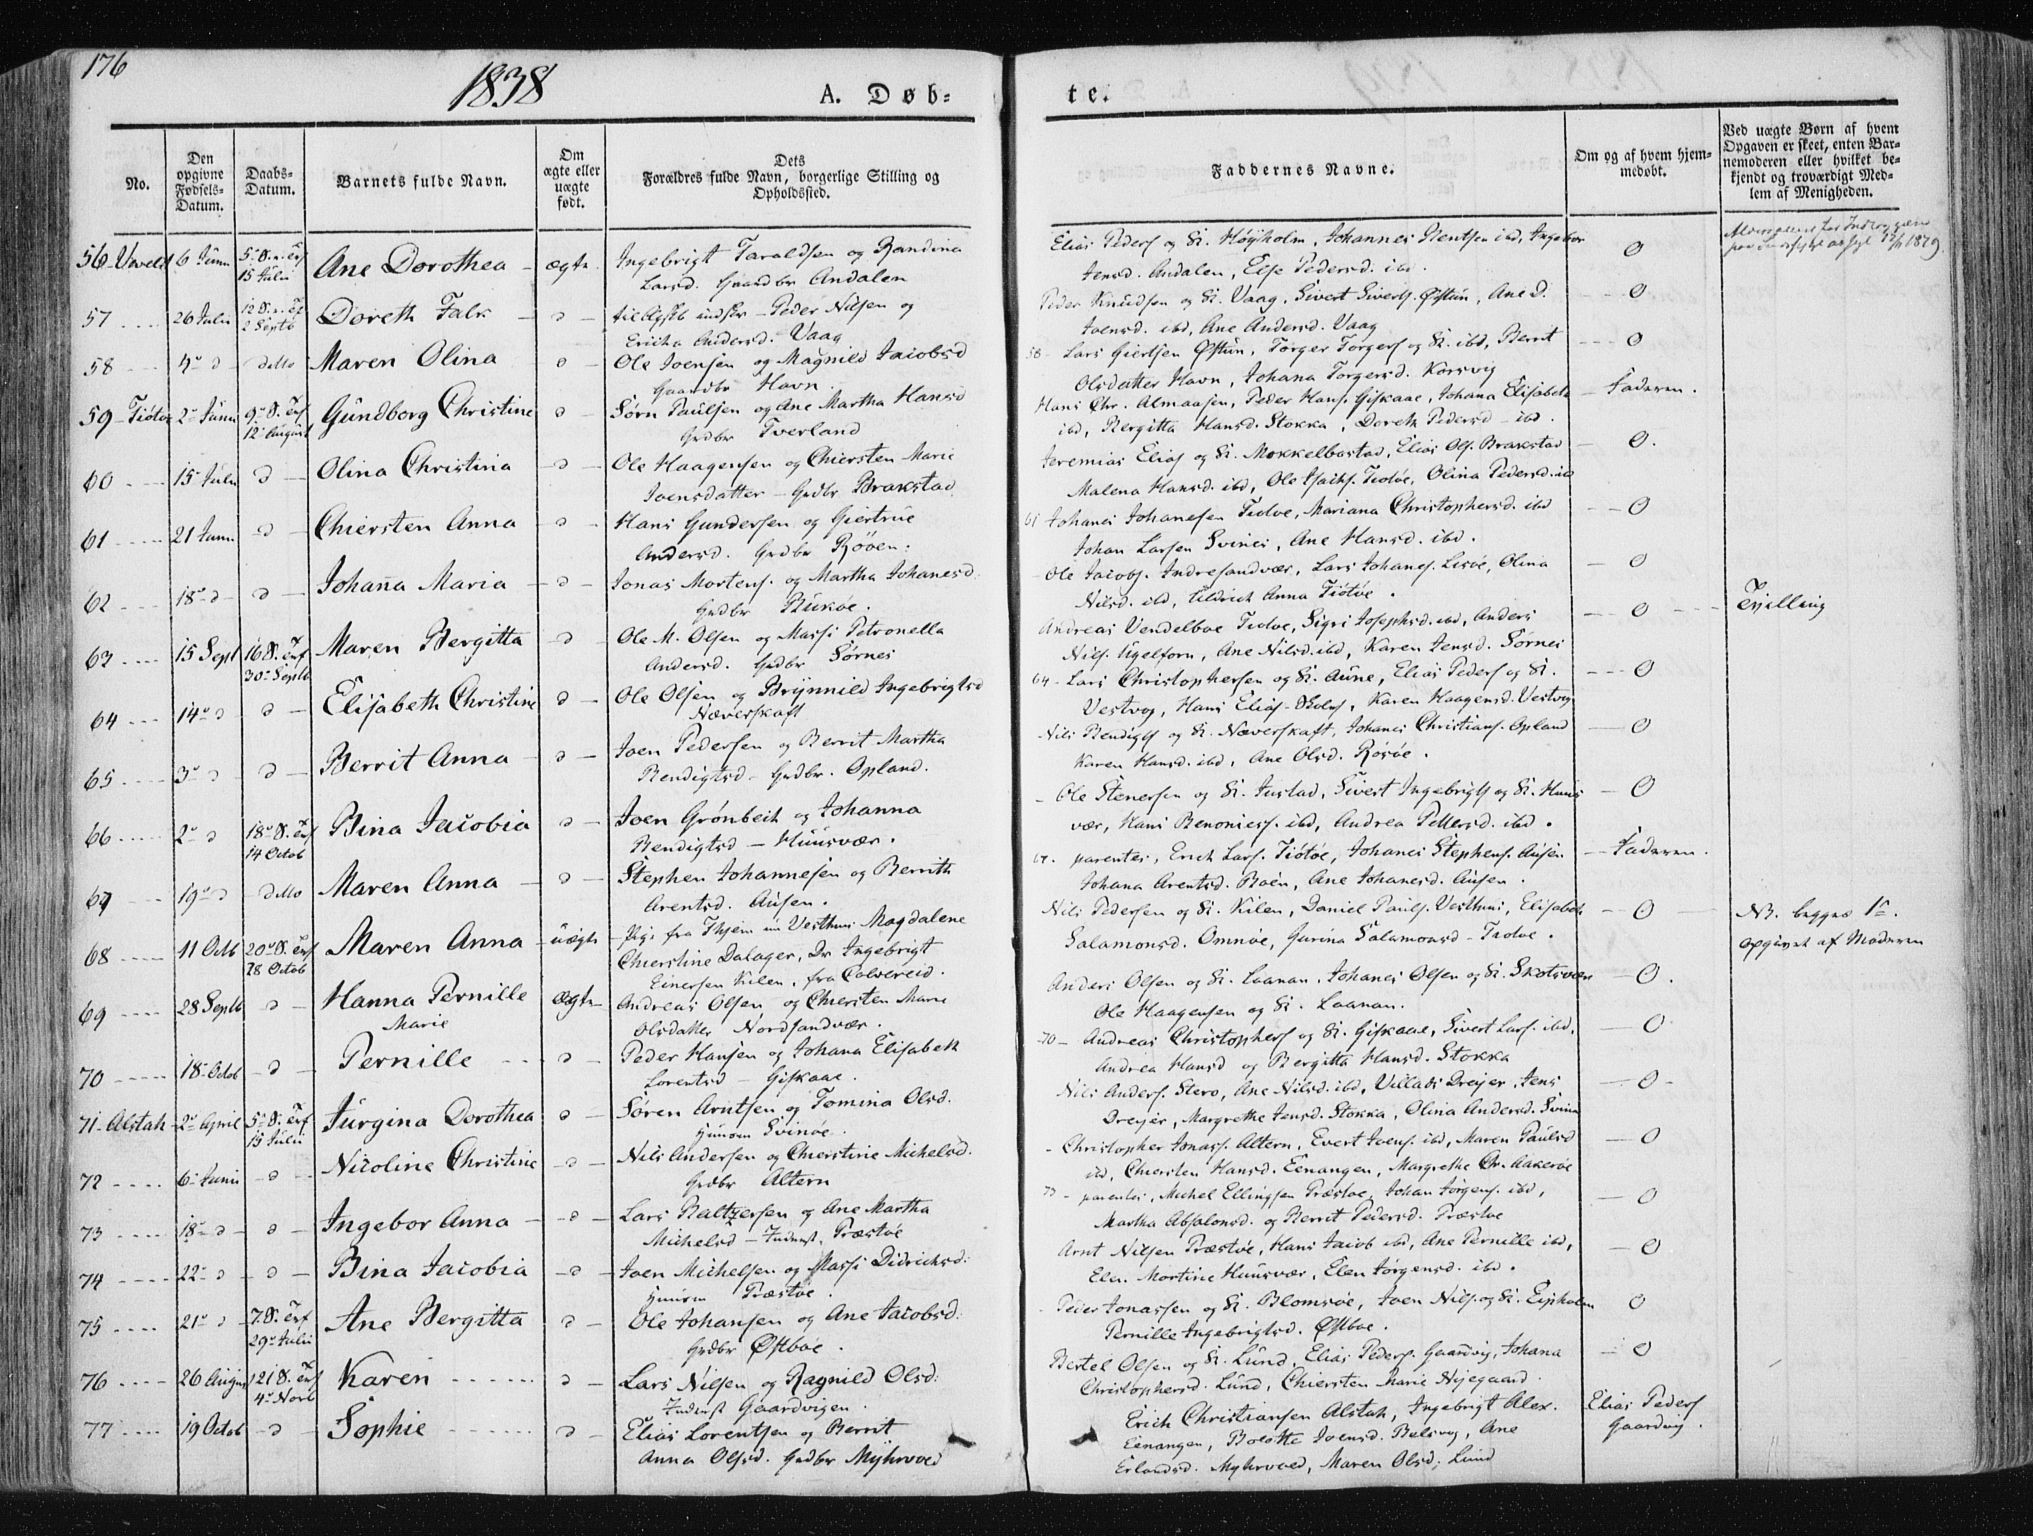 176
1838
A. Døb-
te.
No.
Den opgivne Fødsels-Datum.
Daabs-Datum.
Barnets fulde Navn.
Om ægte eller uægte født.
Dets Forældres fulde Navn, borgerlige Stilling og Opholdssted.
Faddernes Navne.
Om og af hvem hjem-medøbt.
Ved uægte Børn af hvem Opgaven er skeet, enten Bar-nemoderen eller hvilket be-kjendt og troværdigt Med-lem af Menigheden.
56 6 Junii 5. S. e. Trf 15 Julii Ane Dorothea ægte Ingebrigt Taraldsen og Randina
Larsd. Gaardbr Andalen
Elias Peders og K. Høyholm, Johannes Jentsen ibd, Ingebor 0
Jensd. Andalen, Else Pedersd. ibd.
57 26 Julii 12 S. e. Trf 2 Septb Doreth Falk d Peder Nilsen og
Ericha Andersd. Vaag
Peder Knudsen og K. Vaag, Sivert Siverts. Østun, Ane D. 0
Joensd. ibd, Ane Andersd. Vaag
58 4 d ditto Maren Olina d Ole Joensen og Magnild Jacobsd
Gaardbr Havn.
58 Lars Giertsen Østun, Torger Torgers og K. ibd, Berrit 0
Olsdatter Havn, Johana Torgersd. Korsvig
59 Tiøtø 2 Junii 9 S. Trf 12 August Gundborg Christine d Sørn Paulsen og Ane Martha Hansd
Grdbr Tverland
Hans Chr. Almaasen, Peder Hans. Giskaae, Johana Elisabeth Faderen.
ibd, Bergitta Hansd. Stokka, Doreth Pedersd ibd.
60 15 Julii d Olina Christina d Ole Haagensen og Chiersten Marie
Joensdatter Grdbr Brakstad
Jeremias Elias og K. Mokkelbastad, Elias Ols. Brakstad 0.
Malena Hansd. ibd, Ole Tiotøe, Olina Pedersd. ibd
61 21 Junii d Chiersten Anna d Hans Gundersen og Giertrue
Andersd. Grdbr Røoen.
61 Johanes Johanesen Tiotøe, Mariana Christophersd. ibd 0
Johan Larsen Svines, Ane Hansd. ibd.
62 18 d d Johanna Maria d Jonas Mortens. og Martha Johanesd.
Grdbr Bukøe.
Ole Jacobs. Indresandvær, Lars Johanes. Lisøe, Olina 0
Nilsd. ibd, Anna Tiøtøe.
63 15 Sept 16 S. Trf 30 Septb Maren Bergitta d Ole M. Olsen og Massi Petronella
Andersd. Grdbr Sørnes
Andreas Vendelboe Tiotøe, Sigri Josephsd. ibd, Anders 0 Tvilling
Nils. Ugelforn, Ane Nilsd. ibd, Karen Jensd. Sørnes
64 14 d d Elisabeth Christine d Ole Olsen og Brynnild Ingebrigtsd
Næverskaft
64 Lars Christophersen og K. Aune, Elias Peders og K. 0
Vestvog, Hans Elias, Karen Haagensd. Vestvog
65 3 d d Berrit Anna d Joen Pedersen og Berrit Martha
Bendigtsd Grdbr. Opland.
Nils Bendigts og K. Næverskaft, Johanes Christians. Opland 0
Karen Hansd. ibd, Ane Olsd. Rosøe.
66 2 d 18 S. Trf 14 Octob Bina Jacobia d Joen Grønbeck og Johanna
Bendigtsd Huusvær.
Ole Stenersen og K. Justad, Sivert Ingebrigts og K. Huus 0
vær, Hans Benonies. ibd, Andrea Pettersd. ibd.
67 19 d ditto Maren Anna d Stephen Johannesen og Berrith
Arentsd. Ausen.
67. parentes, Erich Lars. Tiøtøe, Johanes Stephens. Ausen Faderen.
Johana Arentsd. Roen, Ane Johanesd. Ausen.
68 11 Octb 20 S. Trf 28 Octob Maren Anna uægte Pige fra Vesthuus Magdalene
Chierstine Dalager, Dr Ingebrigt
Einersen Kilen, fra Colvereid.
Nils Pedersen og K. Kilen, Daniel Pauls. Vesthuus, Elisabeth 0 NB. begges 1ste
Salamonsd. Omnøe, Gurina Salamonsd Tiotøe. opgivet af Moderen
69 28 Septb d Hanna Pernille Marie ægte Andreas Olsen og Chiersten Marie
Olsdatter Nordsandvær.
Anders Olsen og K. Laanan, Johanes Olsen og K. Skotsvær 0.
Ole Haagensen og K. Laanan.
70 18 Octob d Pernille d Peder Hansen og Johana Elisabeth
Lorentsd Giskaae.
70 Andreas Christophers og K. Giskaae, Sivert Lars. ibd, 0
Andrea Hansd og Bergitta Hansd. Stokka
71 Alstah 2 April 5 S. Trf 15 Julii Jurgina Dorothea d Søren Arntsen og Tomina Olsd.
Svinøe.
Nils Anders. Stero, Ane Nilsd. ibd, Villads Dreyer, Jens 0
Dreyer, Margrethe Jensd. Stokka, Olina Andersd. Svinø
72 6 Junii d Nicoline Christine d Nils Andersen og Chierstine Michelsd.
Grdbr Altern
Christopher Jonass. Altern, Evert Joens. ibd, Maren Paulsd 0
ibd, Chiersten Hansd. Eenangen, Margrethe Chr. Aakerøe
73 18 d d Ingebor Anna d Lars Baltzersen og Ane Martha
Michelsd Inderst. Præstøe
73 parentes, Michel Ellingsen Præstøe, Johan Jørgens. ibd, 0
Martha Absalonsd. og Berrit Pedersd. Præstøe
74 22 d d Bina Jacobia d Joen Michelsen og Massi Didrichsd.
Præstøe.
Arnt Nilsen Præstøe, Hans Jacob ibd, Ane Pernille ibd, 0
Elen Mortine Huusvær, Elen Jørgensd. ibd.
75 21 d 7. S. Trf 29 Julii Ane Bergitta d Ole Johansen og Ane Jacobsd.
Grdbr Østbøe.
Peder Jonassen og K. Blomsøe, Joen Nils. og K. Eisholm 0
Pernille Ingebrigtsd. Østbøe.
76 26 August 21 S. Trf 4 Novb Karen d Lars Nilsen og Ragnild Olsd.
Inderst Gaardvigen.
Bertel Olsen og K. Lund, Elias Peders. Gaardvig, Johana 0
Christophersd. Lund, Chiersten Marie Nyegaard.
77 19 Octob d Sophie d Elias Lorentsen og Berrit
Anna Olsd. Grdbr Myhrvoed
Erich Christiansen Alstah, Ingebrigt Alex. Elias Peders
Eenangen, Bolotte Joensd. Belsvog, Ane Gaardvig.
Erlandsd. Myhrvoed, Maren Olsd. Lund